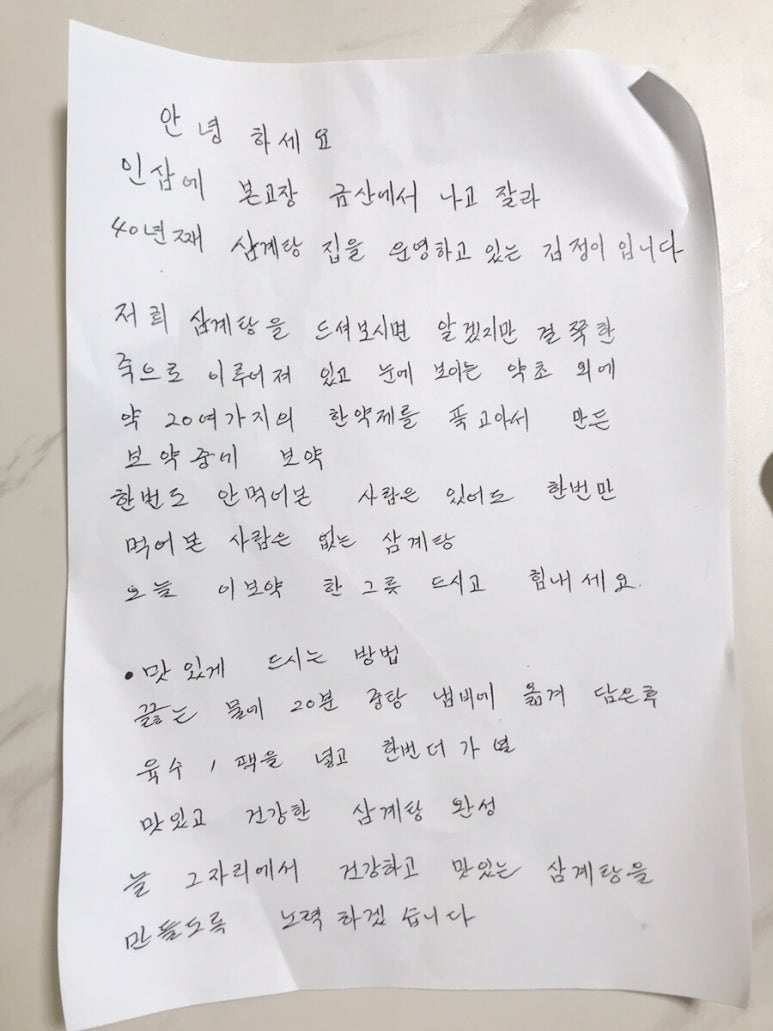 안녕하세요
인삼에 본고장 금산에서 나고 잘라
40년째 삼계탕 집을 운영하고 있는 김정이 입니다
저희 삼계탕을 드셔보시면 알겠지만 걸쭉한
죽으로 이루어져 있고 눈에 보이는 약초 외에
약 20여가지의 한약제를 푹 고아서 만든
보약중에 보약
한번도 안먹어본 사람은 있어도 한번만
먹어본 사람은 없는 삼계탕
오늘 이보약 한 그릇 드시고 힘내세요.
• 맛있게 드시는 방법
끓는 물에 20분 중탕 냄비에 옮겨 담은후
육수 1팩을 넣고 한번더
맛있고 건강한 삼계탕 완성
늘 그자리에서 건강하고 맛있는 삼계탕을
만들도록 노력 하겠습니다